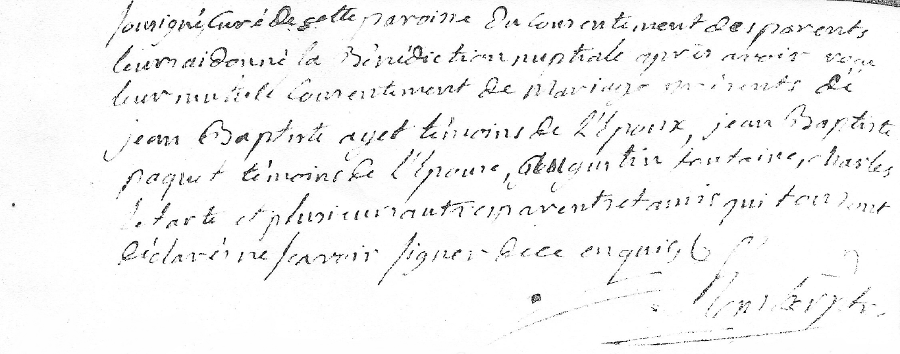 soussigné Curé de cette paroisse du Consentement des parents
leurs ai donné la Bénédiction nuptiale après avoir reçu
leur mutuele Consentement de Mariage présents de
jean Baptiste ayet témoins de L'Epoux, jean Baptiste
paquet témoins de L'Epouse, augustin fontaine, charles
letarte et plusieurs autres parents et amis qui tous ont
déclarés ne sçavoir signer de ce enquis